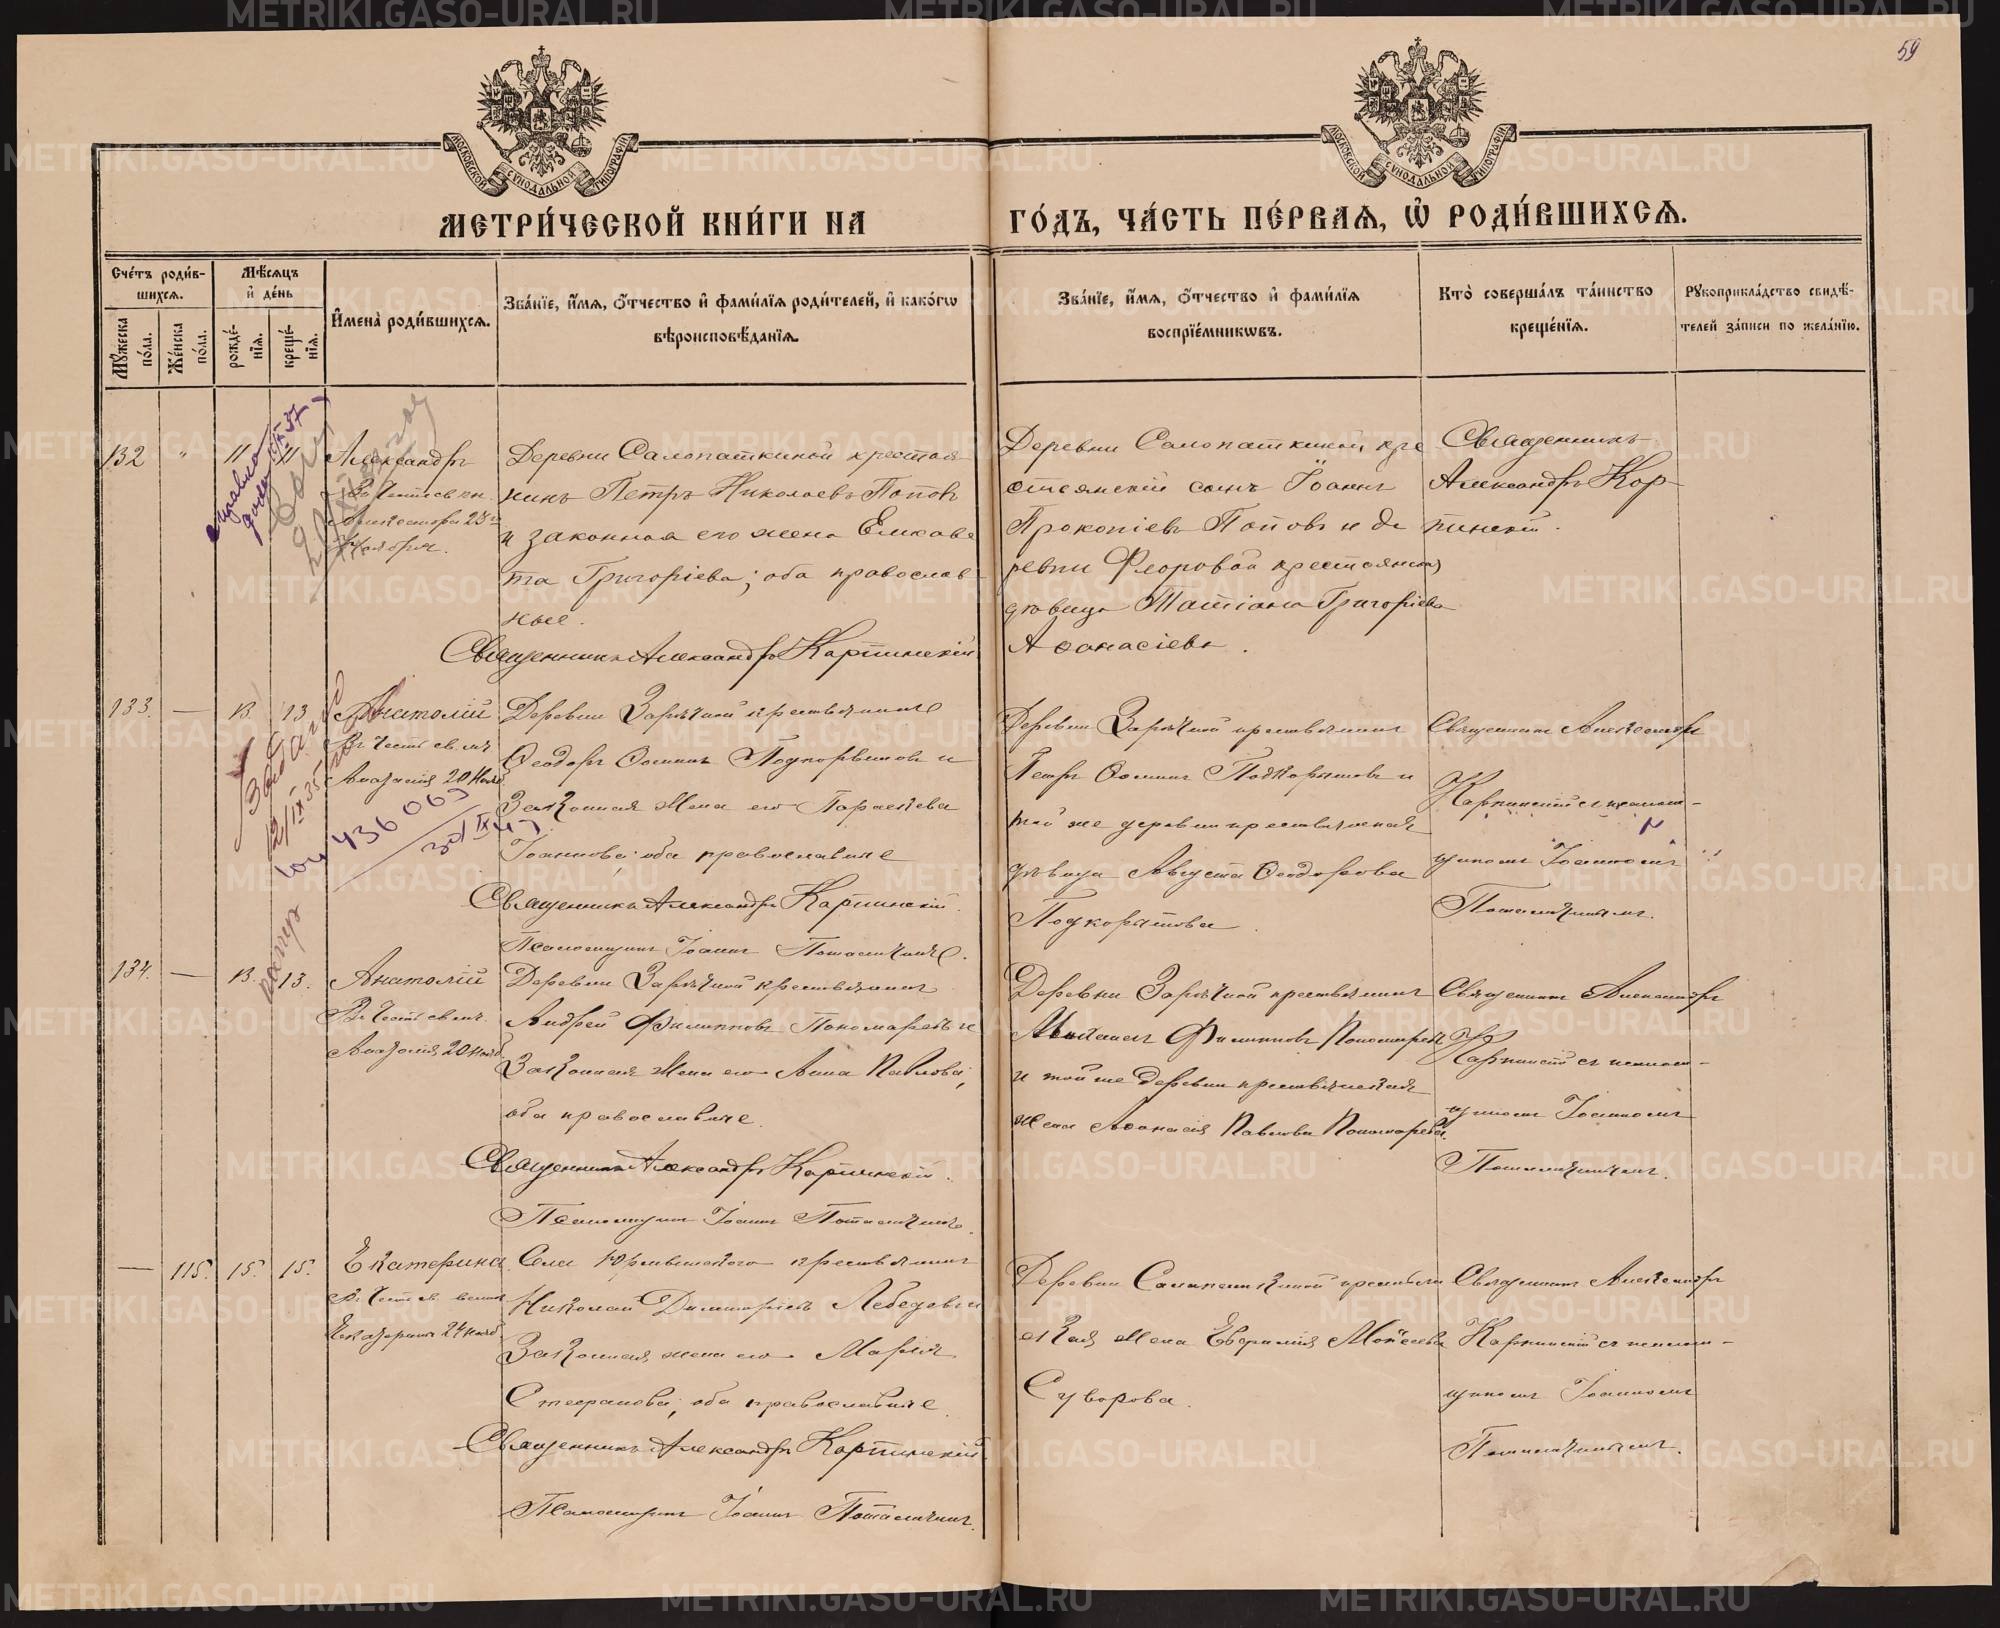 59
МОСКОВСКОЙ СѴНОДАЛЬНОЙ ТИПОГРАФІИ
МОСКОВСКОЙ СѴНОДАЛЬНОЙ ТИПОГРАФІИ
МЕТРИ́ЧЕСКОЙ КНИ́ГИ НА ГО́ДЪ, ЧА́СТЬ ПЕ́РВАѦ, Ѡ҆ РОДИ́ВШИХСѦ.
Сче́тъ роди́вшихсѧ.
Мꙋ́жеска по́ла.
Же́нска по́ла.
Мѣ́сѧцъ и҆ де́нь
рожде́нїѧ.
креще́нїѧ.
И҆мена̀ роди́вшихсѧ.
Зва́нїе, и҆́мѧ, ѻ҆́тчество и҆ фами́лїѧ роди́телей, и҆ како́гѡ
вѣроисповѣ́данїѧ.
Зва́нїе, и҆́мѧ, ѻ҆́тчество и҆ фами́лїѧ
воспрїе́мникѡвъ.
Кто̀ соверша́лъ та́инство
креще́нїѧ.
Рꙋкоприкла́дство свидѣ́-
телей за́писи по жела́нїю.
132 " 11 11
Александръ
Александра 23го
Ноября.
Деревни Салопаткиной крестья-
нинъ Петръ Николаевъ Поповъ
и законная его жена Елисаве
та Григоріева; оба православ
ные.
Священникъ Александръ Карпинскій
Деревни Салопаткиной кре
стьянскій сынъ Іоаннъ
Прокопіевъ Поповъ и де
ревни Флоровой крестьянская
дѣвица Татіана Григоріева
Аѳанасіева.
Священникъ
Александръ Кар-
пинскій.
133. — 13. 13
Анатолій
Въ честь св. мч.
Анатолія 20 Нояб
12/IX 35
436063
Деревни Зарѣчной крестьянинъ
Ѳеодоръ Ѳоминъ Подкорытовъ и
Законная жена его Параскева
Іоаннова; оба православные
Священникъ Александръ Карпинскій.
Псаломщикъ Іоаннъ
Деревни Зарѣчной крестьянинъ
Петръ Ѳоминъ Подкорытовъ и
той же деревни крестьянская
дѣвица Августа Ѳеодорова
Подкорытова.
Священникъ Александръ
Карпинскій съ псалом-
щикомъ Іоанномъ
134. — 13. 13.
Анатолій
Въ честь св. мч.
Анатолія 20 Нояб
Деревни Зарѣчной крестьянинъ
Андрей Филипповъ Пономаревъ и
Законная жена его Анна Павлова;
оба православные.
Священникъ Александръ Карпинскій.
Псаломщикъ Іоаннъ
Деревни Зарѣчной крестьянинъ
Филипповъ Пономаревъ
и той же деревни крестьянская
жена Аѳанасія Павлова Пономарева.
Священникъ Александръ
Карпинскій съ псалом-
щикомъ Іоанномъ
— 115. 15. 15.
Екатерина
Въ честь св. велик
Екатерины 24 нояб
Села крестьянинъ
Николай Димитріевъ Лебедевъ и
Законная жена его Марія
Стефанова; оба православные
Священникъ Александръ Карпинскій
Псаломщикъ Іоаннъ
Деревни Салопаткиной крестьян
ская жена Евфимія Моисеева
Суворова.
Священникъ Александръ
Карпинскій съ псалом-
щикомъ Іоанномъ
METRIKI.GASO-URAL.RU